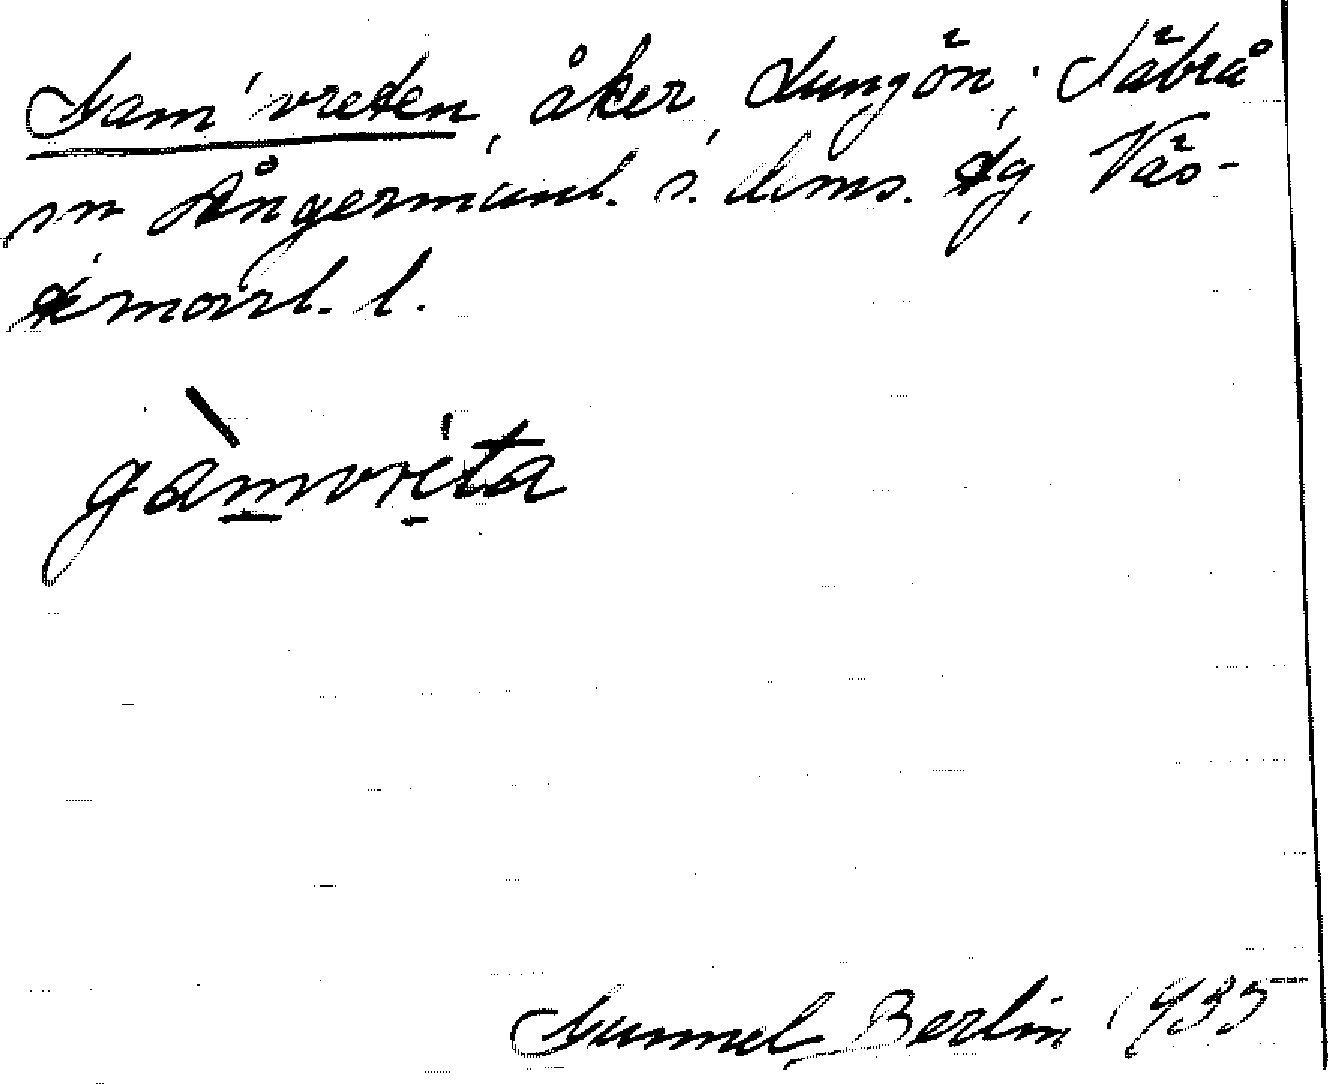 Gam'vreten, åker, Lungön, Säbrå
sn Ångermanl. s. doms. tg, Väs-
ternorrl. l.
gàmvrita
Gunnel Berlin 1935